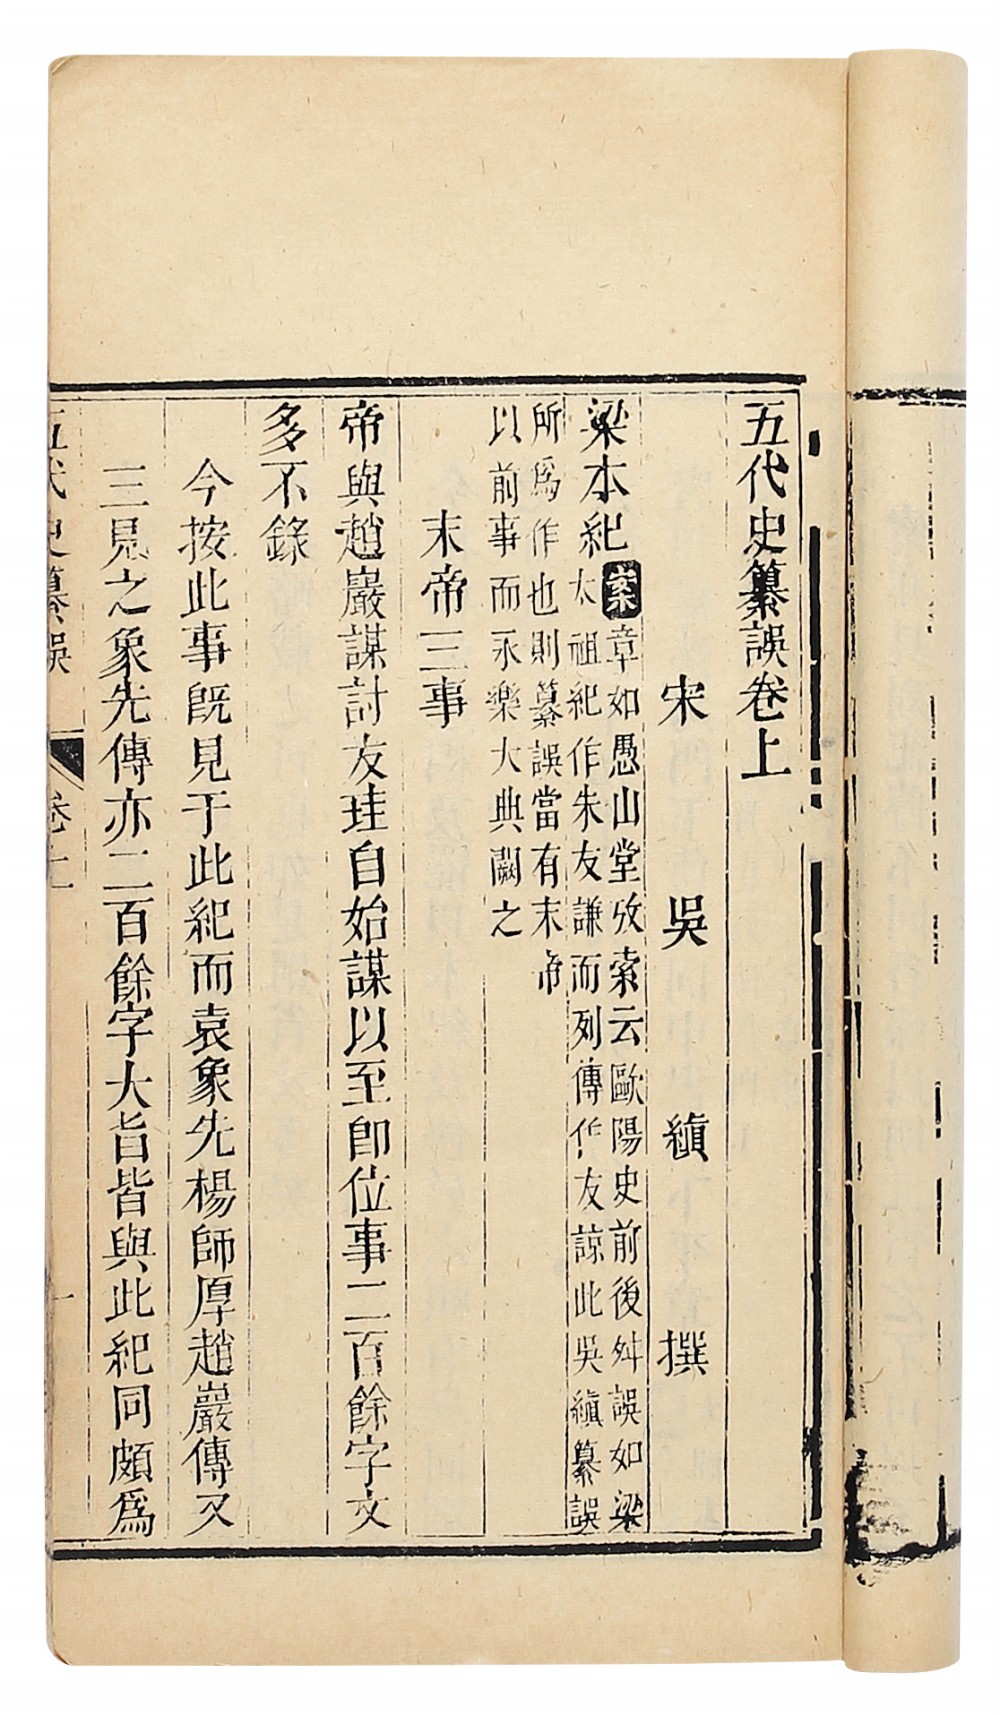 五代史纂誤卷上
宋 吳 縝 撰
梁本紀案章如愚山堂攷索云歐陽史前後舛誤如梁
太祖紀作朱友謙而列傳作友諒此吳縝纂誤
所爲作也則纂誤當有末帝
以前事而永樂大典闕之
末帝三事
帝與趙巖謀討友珪自始謀以至即位事二百餘字文
多不錄
今按此事既見于此紀而袁象先楊師厚趙巖傳又
三見之象先傳亦二百餘字大旨皆與此紀同頗爲
五代史纂誤 卷上 一